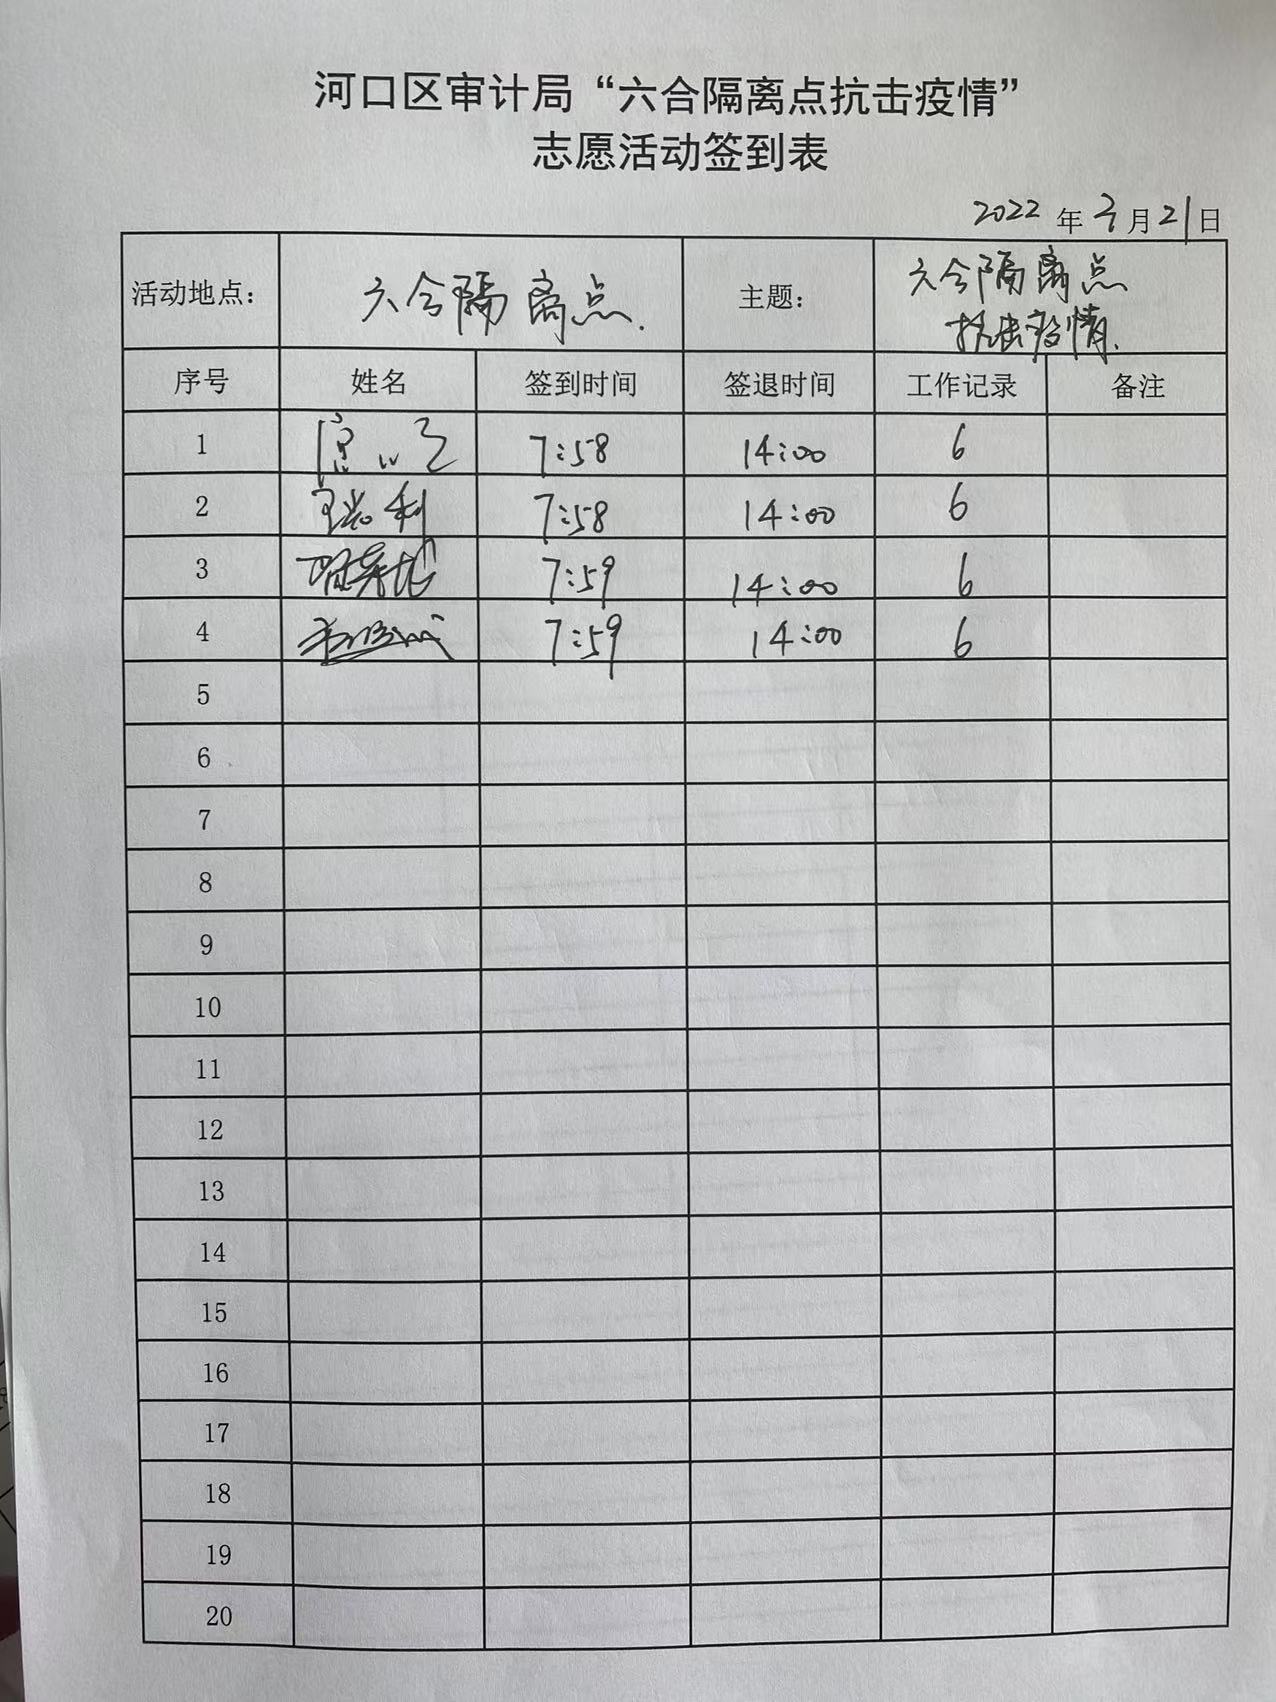 河口区审计局“六合隔离点抗击疫情”
志愿活动签到表
2022 年 3 月 21 日
活动地点： 六合隔离点. 主题： 六合隔离点
抗击疫情.
序号 姓名 签到时间 签退时间 工作记录 备注
1 7:58 14:00 6
2 7:58 14:00 6
3 7:59 14:00 6
4 7:59 14:00 6
5
6
7
8
9
10
11
12
13
14
15
16
17
18
19
20